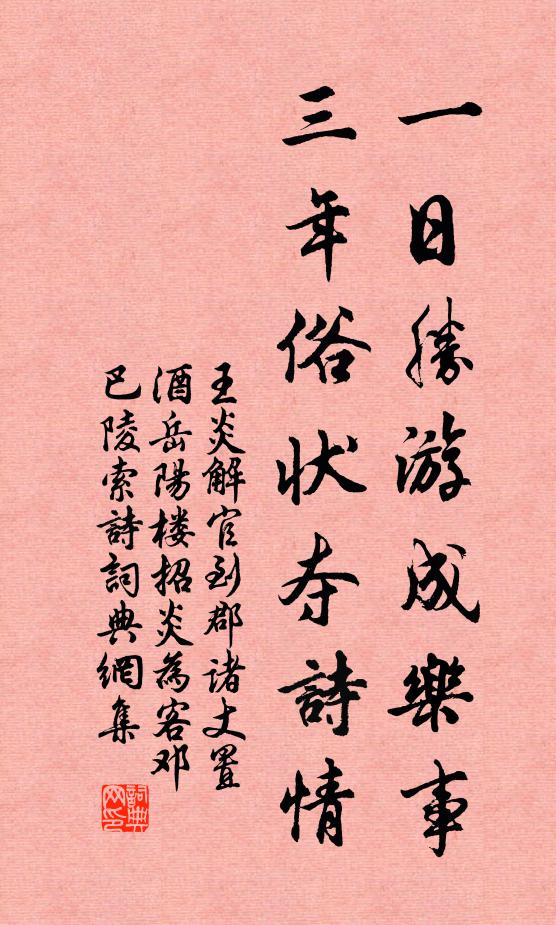 一日勝游成樂事
三年俗状夺詩情
王炎解官到郡诸丈置
酒岳陽楼招炎為客邓
巴陵索詩詞典網集
詞典网印